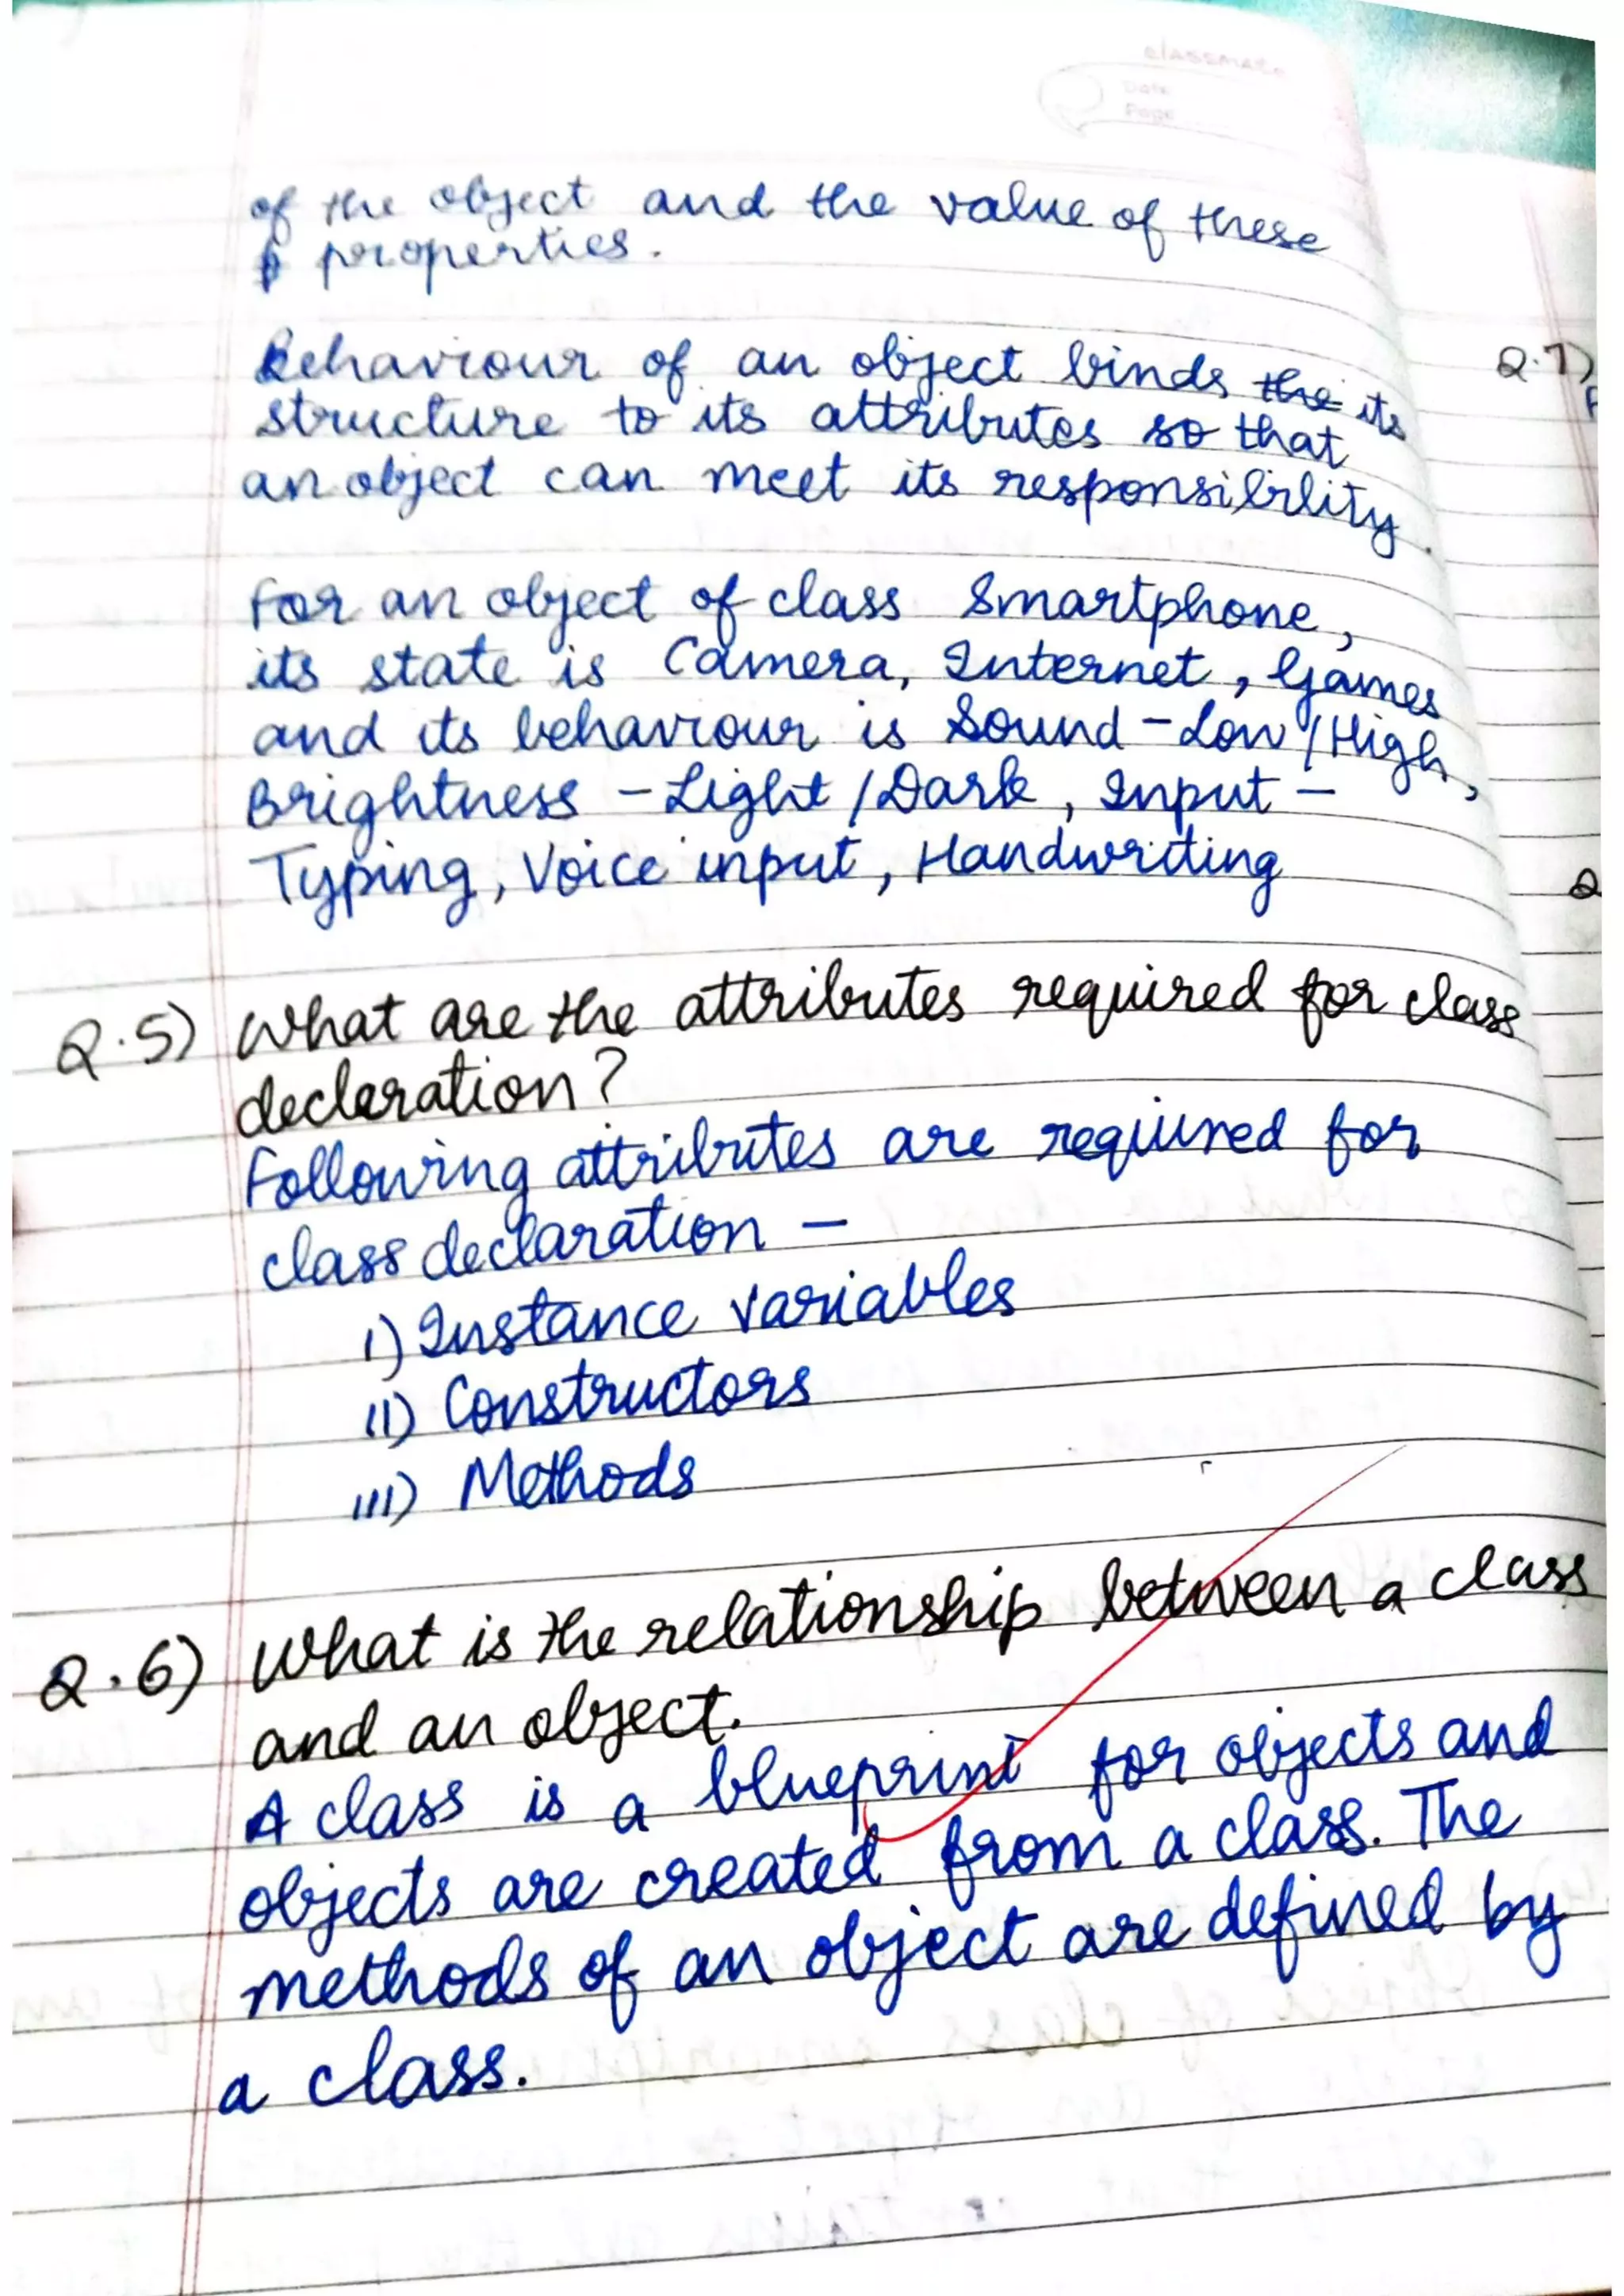 classmate
Date
Page
of the object and the value of these
properties.
Behaviour of an object binds the its
structure to its attributes so that
an object can meet its responsibility.
For an object of class Smartphone,
its state is Camera, Internet, Games
and its behaviour is Sound - Low / High,
Brightness - Light / Dark, Input -
Typing, Voice input, Handwriting
Q.5) What are the attributes required for class
declaration?
Following attributes are required for
class declaration -
i) Instance variables
ii) Constructors
iii) Methods
Q.6) What is the relationship between a class
and an object.
A class is a blueprint for objects and
objects are created from a class. The
methods of an object are defined by
a class.
Q.7)
Q